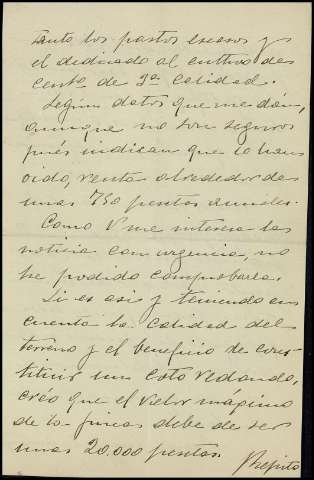 tanto los pastos escasos y
el dedicado al cultivo de
cente de 2ª calidad.
Según datos que me dán,
aunque no son seguros
pués indican que lo han
oido, renta alrededor de
unas 750 pesetas anuales.
Como V me interesa las
noticia con urgencia, no
he podido comprobarlas.
Si es así y teniendo en
cuenta la calidad del
terreno y el beneficio de cons-
tituir un coto redondo,
creo que el valor máximo
de la finca debe de ser
unas 20.000 pesetas.